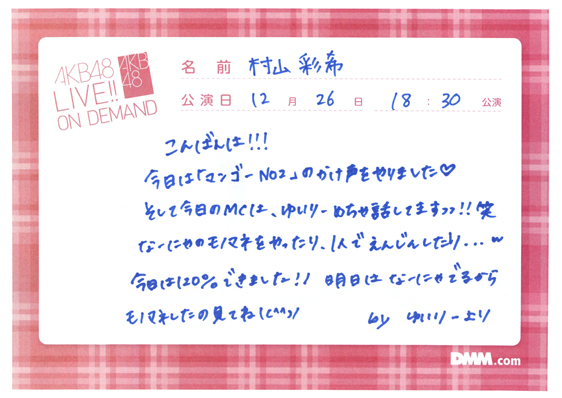 AKB48
LIVE!!
ON DEMAND
AKB
48
名前 村山彩希
公演日 12月26日 18:30公演
こんばんは!!!
今日は「マンゴーNO2」のかけ声をやりました♡
そして今日のMCは、ゆいりーめちゃ話してますッッ!!笑
なーにゃのモノマネをやったり、1人でえんじんしたり...w
今日は120%できました!! 明日はなーにゃでるから
モノマネしたの見てね!(^^)
by ゆいりーより
DMM.com